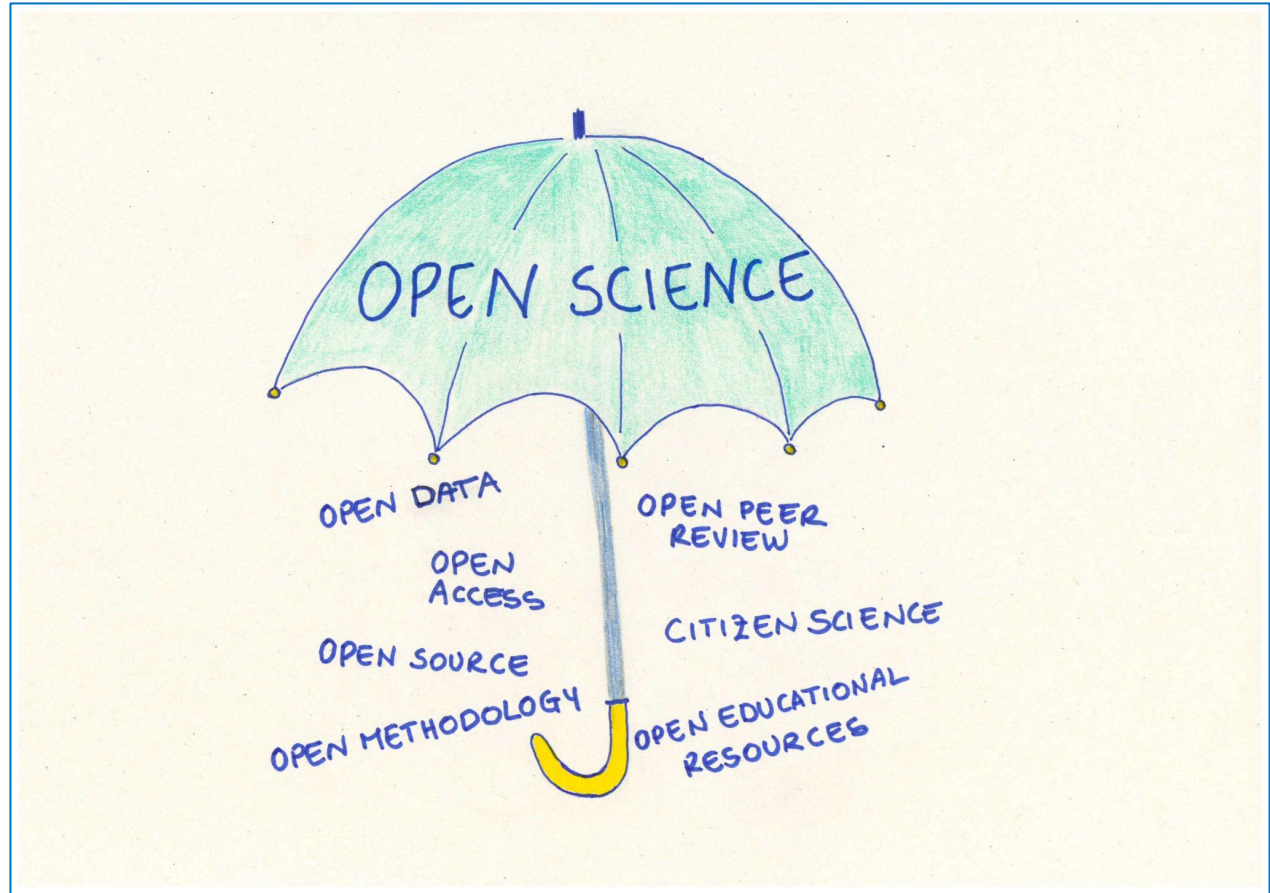 OPEN SCIENCE
OPEN DATA
OPEN
ACCESS
OPEN SOURCE
OPEN METHODOLOGY
OPEN PEER
REVIEW
CITIZEN SCIENCE
OPEN EDUCATIONAL
RESOURCES